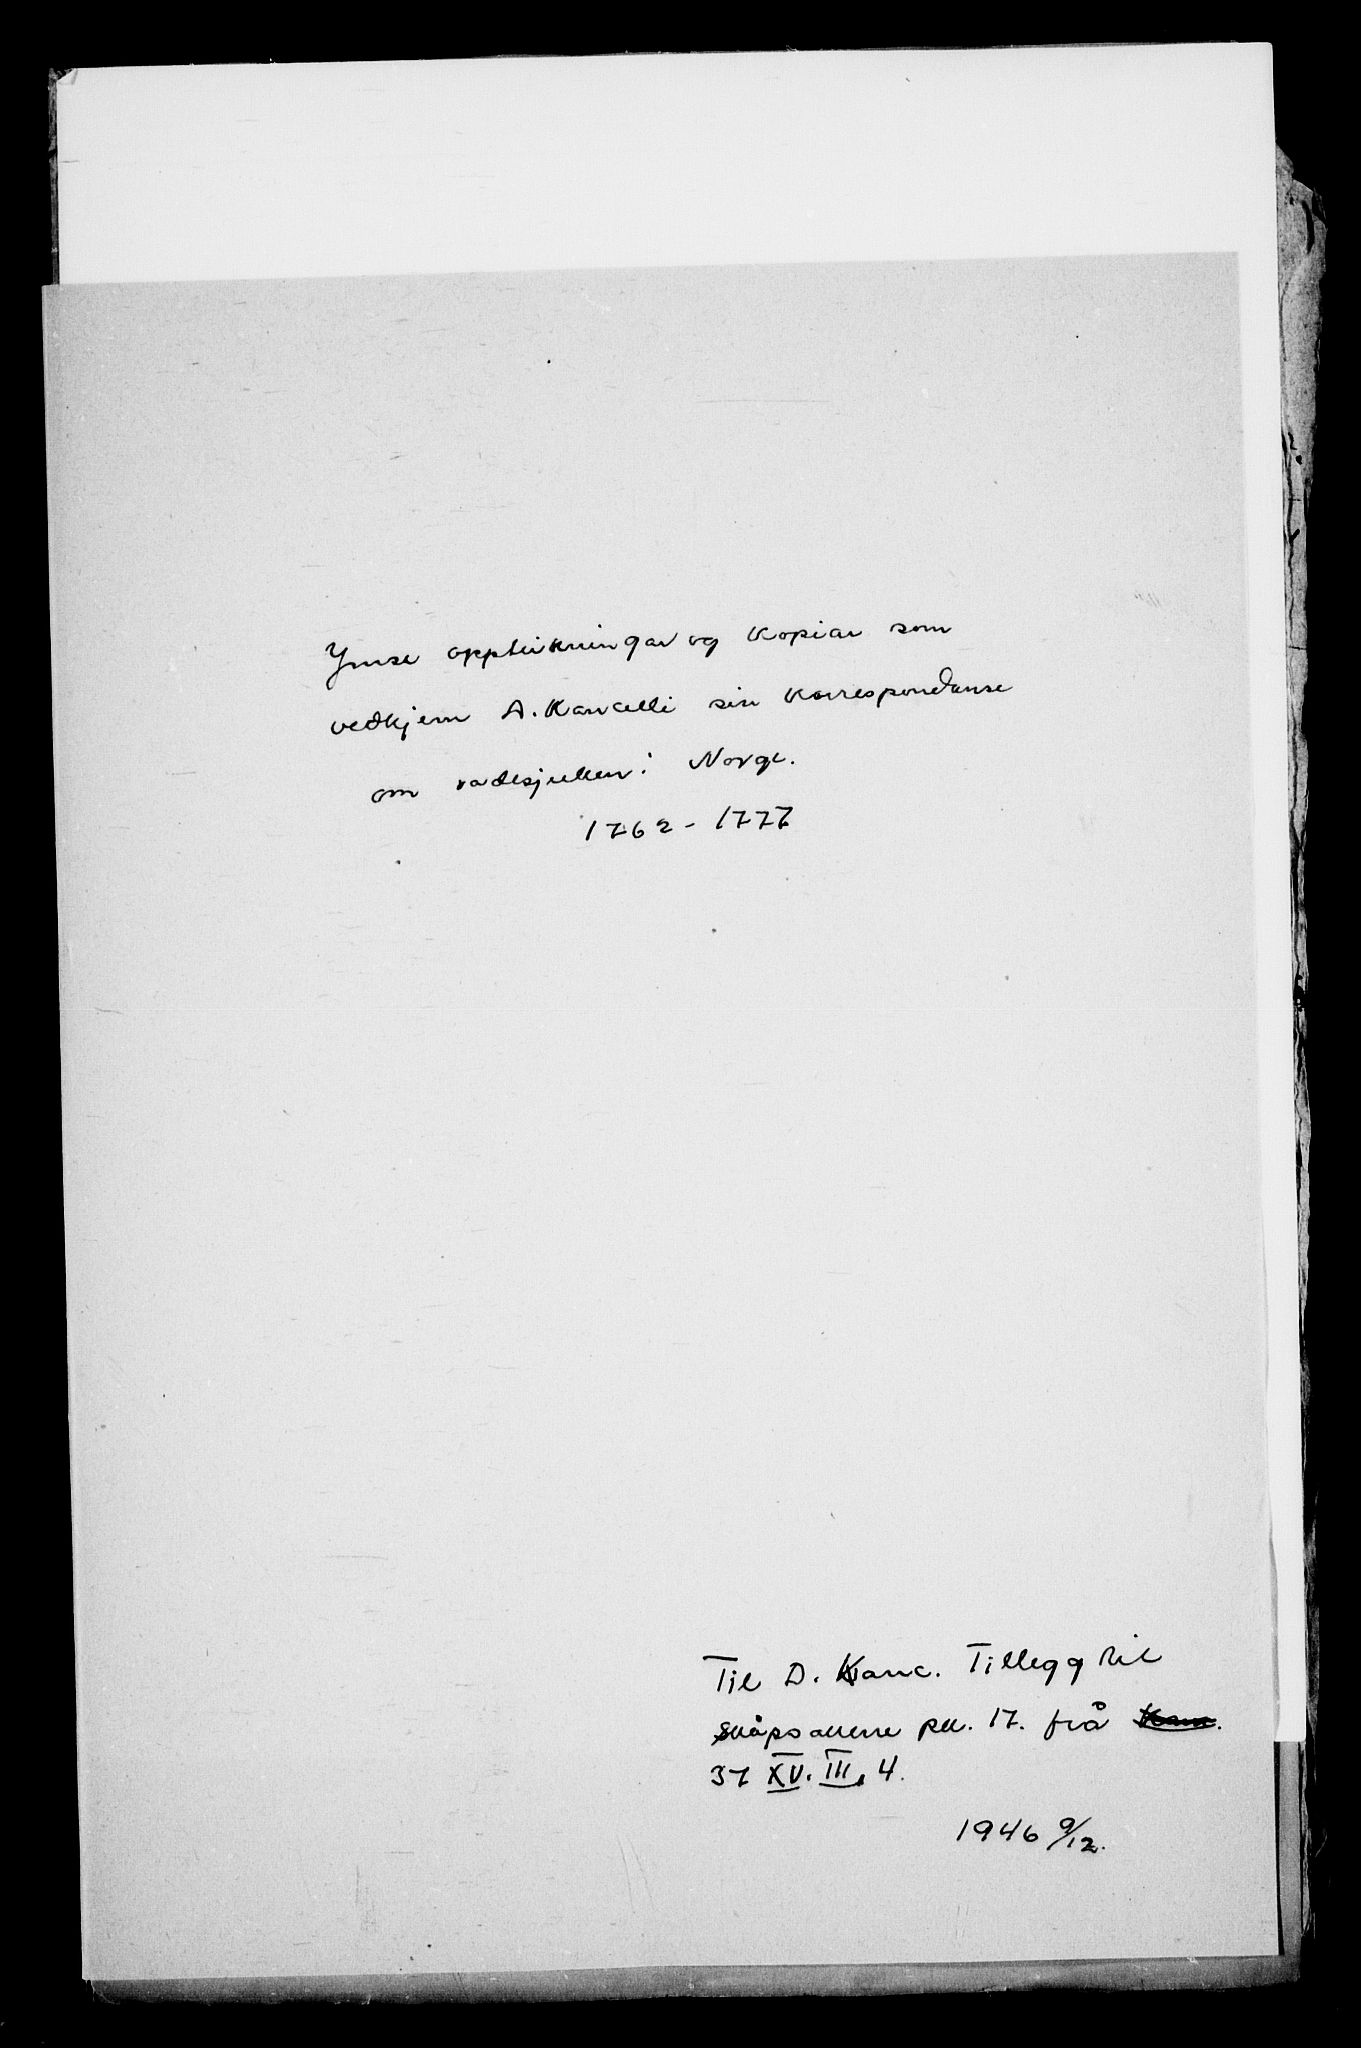 Ymse oppteikningar og kopiar som
vedkjem A. Kancelli sin korrespondanse
om radesjuken i Norge.
1762 - 1777
Til D. Kanc. Tillegg til
skåpsakene pk. 17. frå
37 XV. III, 4.
1946 9/12.